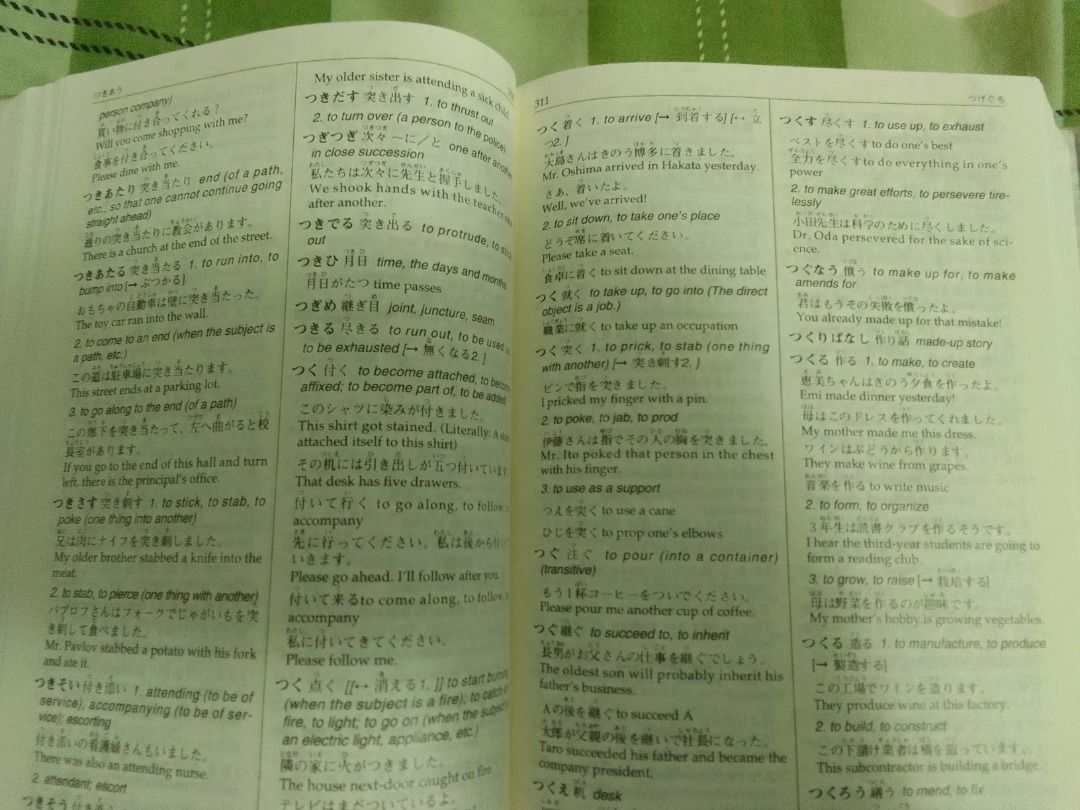 つきあう
person company)
買い物に付き合ってくれる?
Will you come shopping with me?
食事を付き合ってください。
Please dine with me.
つきあたり 突き当たり end (of a path,
etc., so that one cannot continue going
straight ahead)
通りの突き当たりに教会があります。
There is a church at the end of the street.
つきあたる 突き当たる 1. to run into, to
bump into [→ ぶつかる]
おもちゃの自動車は壁に突き当たった。
The toy car ran into the wall.
2. to come to an end (when the subject is
a path, etc.)
この道は駐車場に突き当たります。
This street ends at a parking lot.
3. to go along to the end (of a path)
この廊下を突き当たって、左へ曲がると校
長室があります。
If you go to the end of this hall and turn
left, there is the principal's office.
つきさす 突き刺す 1. to stick, to stab, to
poke (one thing into another)
兄は肉にナイフを突き刺しました。
My older brother stabbed a knife into the
meat.
2. to stab, to pierce (one thing with another)
パブロフさんはフォークでじゃがいもを突
き刺して食べました。
Mr. Pavlov stabbed a potato with his fork
and ate it.
つきそい 付き添い 1. attending (to be of
service), accompanying (to be of ser-
vice); escorting
付き添いの看護婦さんもいました。
There was also an attending nurse.
2. attendant; escort
つきそう 付き添う
My older sister is attending a sick child.
つきだす 突き出す 1. to thrust out
2. to turn over (a person to the police)
つぎつぎ 次々 〜に/と one after another,
in close succession
私たちは次々に先生と握手しました。
We shook hands with the teacher one
after another.
つきでる 突き出る to protrude, to stick
out
つきひ 月日 time, the days and months
月日がたつ time passes
つぎめ 継ぎ目 joint, juncture, seam
つきる 尽きる to run out, to be used up,
to be exhausted [→ 無くなる2.]
つく 付く to become attached, to become
affixed; to become part of, to be added
このシャツに染みが付きました。
This shirt got stained. (Literally: A stain
attached itself to this shirt)
その机には引き出しが五つ付いています
That desk has five drawers.
付いて行く to go along, to follow
accompany
先に行ってください。私は後から付いて
いきます。
Please go ahead. I'll follow after you.
付いて来る to come along, to follow
accompany
私に付いてきてください。
Please follow me.
つく 点く [[↔ 消える1.]] to start burning
(when the subject is a fire); to catch
fire, to light; to go on (when the subject is
an electric light, appliance, etc.)
隣の家に火がつきました。
The house next-door caught on fire.
テレビはまだついているよ。
311
つく 着く 1. to arrive [→ 到着する] [↔ 立
つ2.]
大島さんはきのう博多に着きました。
Mr. Oshima arrived in Hakata yesterday.
さあ、着いたよ。
Well, we've arrived!
2. to sit down, to take one's place
どうぞ席に着いてください。
Please take a seat.
食卓に着く to sit down at the dining table
つく 就く to take up, to go into (The direct
object is a job.)
職業に就く to take up an occupation
つく 突く 1. to prick, to stab (one thing
with another) [→ 突き刺す2.]
ピンで指を突きました。
I pricked my finger with a pin.
2. to poke, to jab, to prod
伊藤さんは指でその人の胸を突きました。
Mr. Ito poked that person in the chest
with his finger.
3. to use as a support
つえを突く to use a cane
ひじを突く to prop one's elbows
つぐ 注ぐ to pour (into a container)
(transitive)
もう1杯コーヒーをついでください。
Please pour me another cup of coffee.
つぐ 継ぐ to succeed to, to inherit
長男がお父さんの仕事を継ぐでしょう。
The oldest son will probably inherit his
father's business.
Aの後を継ぐ to succeed A
太郎が父親の後を継いで社長になった。
Taro succeeded his father and became the
company president.
つくえ 机 desk
つげぐち
つくす 尽くす 1. to use up, to exhaust
ベストを尽くす to do one's best
全力を尽くす to do everything in one's
power
2. to make great efforts, to persevere tire-
lessly
小田先生は科学のために尽くしました。
Dr. Oda persevered for the sake of sci-
ence.
つぐなう 償う to make up for, to make
amends for
君はもうその失敗を償ったよ。
You already made up for that mistake!
つくりばなし 作り話 made-up story
つくる 作る 1. to make, to create
恵美ちゃんはきのう夕食を作ったよ。
Emi made dinner yesterday!
母はこのドレスを作ってくれました。
My mother made me this dress.
ワインはぶどうから作ります。
They make wine from grapes.
音楽を作る to write music
2. to form, to organize
3年生は読書クラブを作るそうです。
I hear the third-year students are going to
form a reading club.
3. to grow, to raise [→ 栽培する]
母は野菜を作るのが趣味です。
My mother's hobby is growing vegetables.
つくる 造る 1. to manufacture, to produce
[→ 製造する]
この工場でワインを造ります。
They produce wine at this factory.
2. to build, to construct
この下請け業者は橋を造っています。
This subcontractor is building a bridge.
つくろう 繕う to mend, to fix